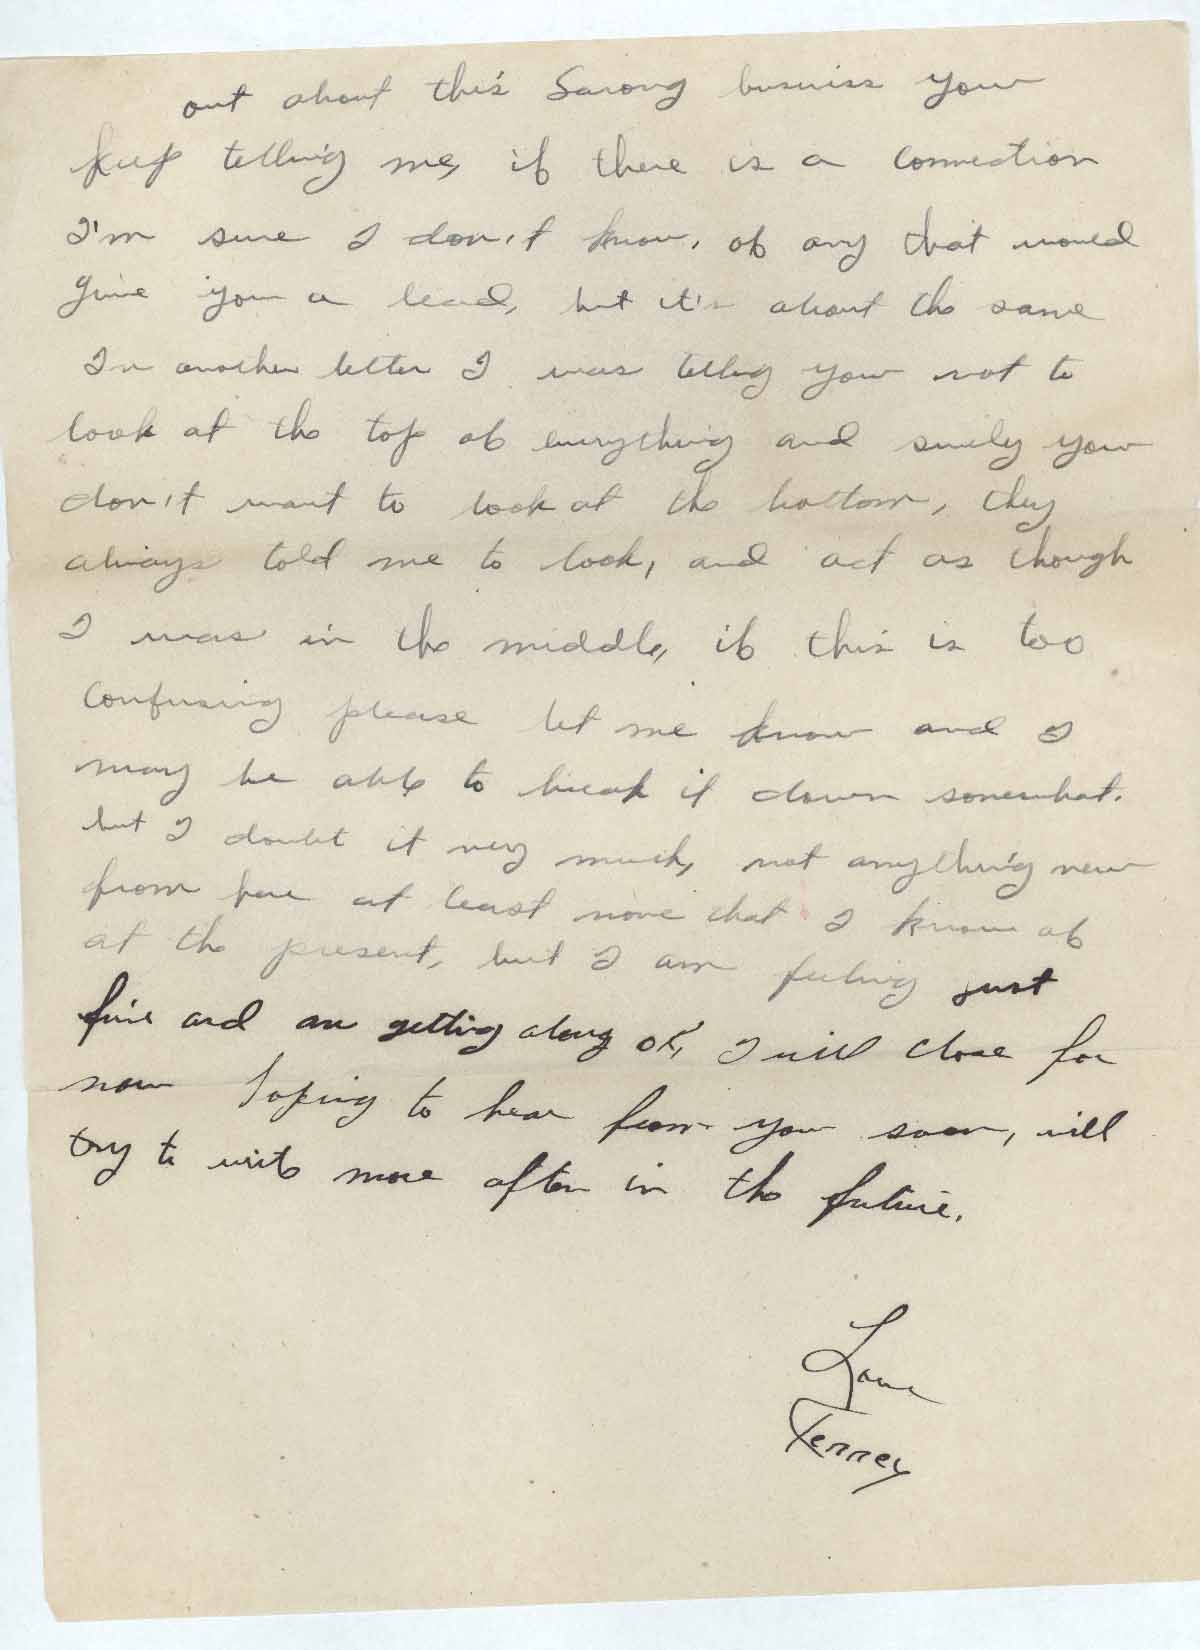 out about this Sarong business you
keep telling me, if there is a connection
I'm sure I don't know, of any that would
give you a lead, but it's about the same
In another letter I was telling you not to
look at the top of everything and surely you
don't want to look at the bottom, they
always told me to look, and act as though
I was in the middle, if this is too
confusing please let me know and I
may be able to break it down somewhat.
but I doubt it very much, not anything new
from here at least none that I know of
at the present, but I am feeling just
fine and am getting along OK, I will close for
now hoping to hear from you soon, will
try to write more often in the future.
Love